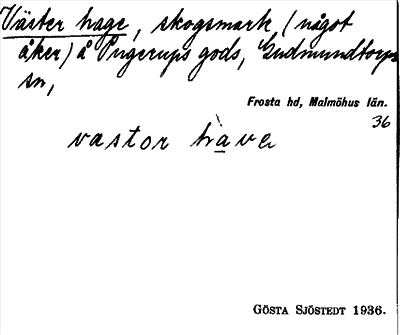 Väster hage, skogsmark (något
åker) å Pugerups gods, Gudmundtorps
sn,
Frosta hd, Malmöhus län.
36
vastor hàve
GÖSTA SJÖSTEDT 1936.